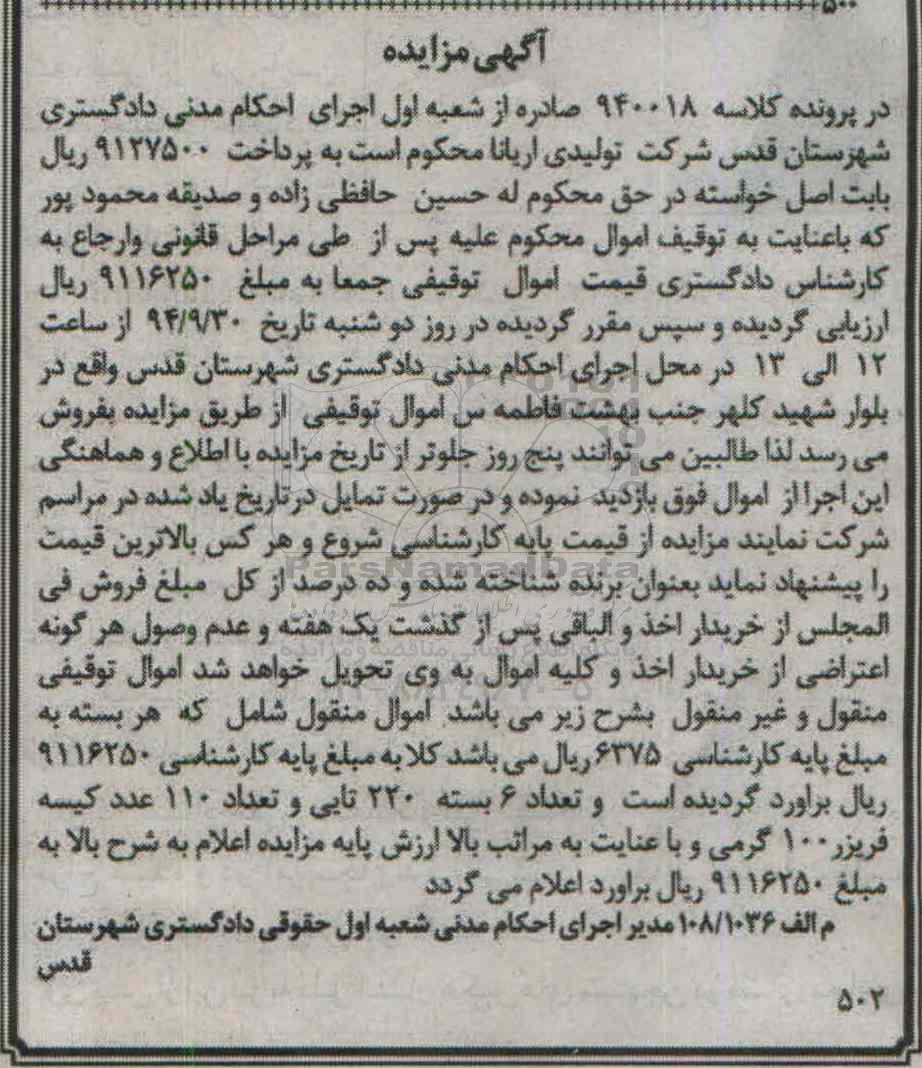 ۵۰۰
آگهی مزایده
در پرونده کلاسه ۹۴۰۰۱۸ صادره از شعبه اول اجرای احکام مدنی دادگستری
شهرستان قدس شرکت تولیدی اریانا محکوم است به پرداخت ۹۱۲۷۵۰۰ ریال
بابت اصل خواسته در حق محکوم له حسین حافظی زاده و صدیقه محمود پور
که باعنایت به توقیف اموال محکوم علیه پس از طی مراحل قانونی وارجاع به
کارشناس دادگستری قیمت اموال توقیفی جمعا به مبلغ ۹۱۱۶۲۵۰ ریال
ارزیابی گردیده و سپس مقرر گردیده در روز دو شنبه تاریخ ۹۴/۹/۳۰ از ساعت
۱۲ الی ۱۳ در محل اجرای احکام مدنی دادگستری شهرستان قدس واقع در
بلوار شهید کلهر جنب بهشت فاطمه س اموال توقیفی از طریق مزایده بفروش
می رسد لذا طالبین می توانند پنج روز جلوتر از تاریخ مزایده با اطلاع و هماهنگی
این اجرا از اموال فوق بازدید نموده و در صورت تمایل در تاریخ یاد شده در مراسم
شرکت نمایند مزایده از قیمت پایه کارشناسی شروع و هر کس بالاترین قیمت
ParsNamadData
را پیشنهاد نماید بعنوان برنده شناخته شده و ده درصد از کل مبلغ فروش فی
المجلس از خریدار اخذ و الباقی پس از گذشت یک هفته و عدم وصول هر گونه
اعتراضی از خریدار اخذ و کلیه اموال به وی تحویل خواهد شد اموال توقیفی
منقول و غیر منقول بشرح زیر می باشد اموال منقول شامل که هر بسته به
مبلغ پایه کارشناسی ۶۳۷۵ ریال می باشد کلا به مبلغ پایه کارشناسی ۹۱۱۶۲۵۰
ریال براورد گردیده است و تعداد ۶ بسته ۲۲۰ تایی و تعداد ۱۱۰ عدد کیسه
فریزر ۱۰۰ گرمی و با عنایت به مراتب بالا ارزش پایه مزایده اعلام به شرح بالا به
مبلغ ۹۱۱۶۲۵۰ ریال براورد اعلام می گردد
م الف ۱۰۸/۱۰۳۶ مدیر اجرای احکام مدنی شعبه اول حقوقی دادگستری شهرستان
قدس
۵۰۲